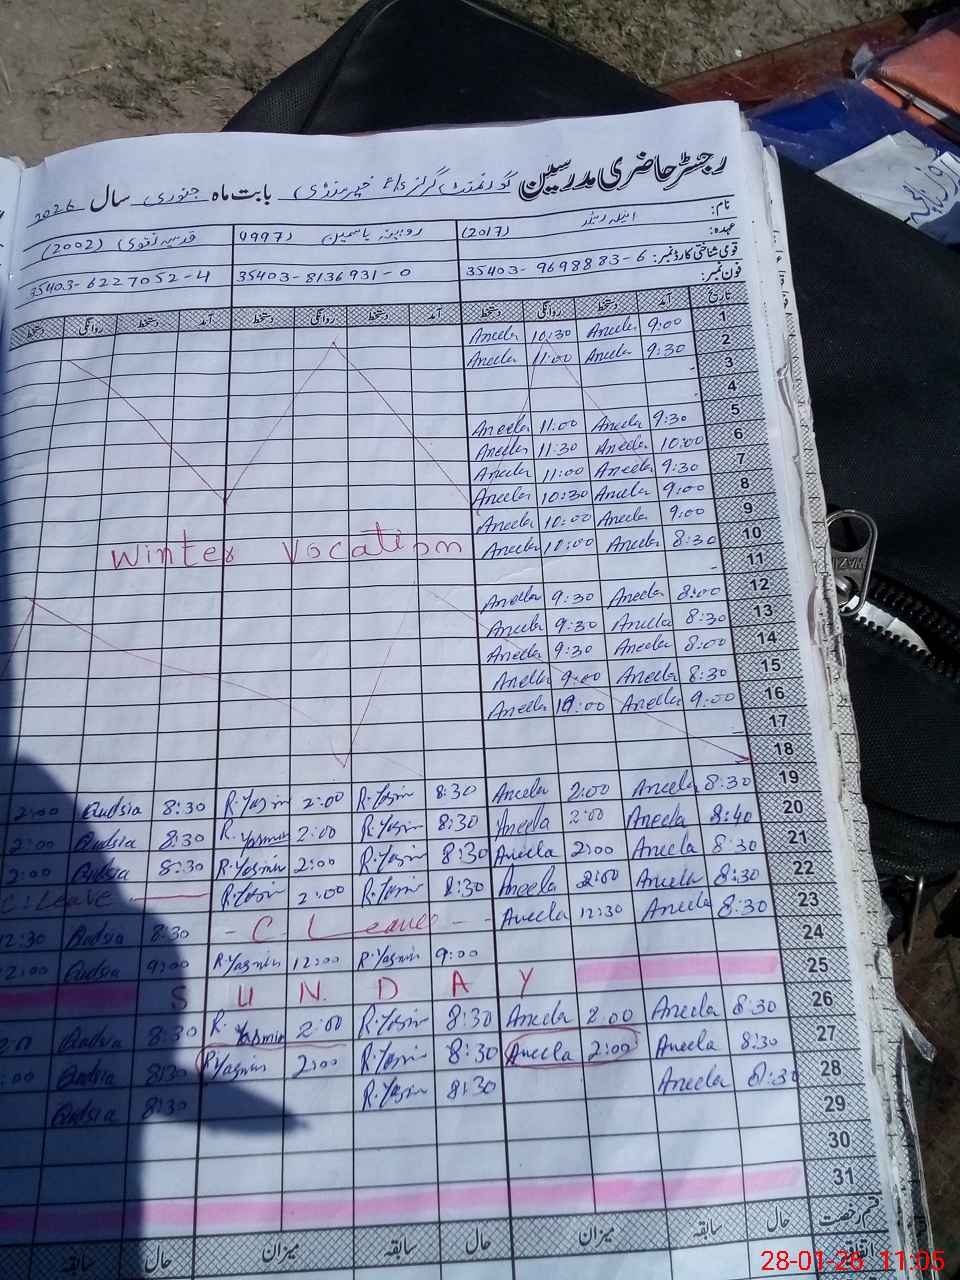 رجسٹر حاضری مدرسین گورنمنٹ گرلز بابت ماہ جنوری سال 2026
نام:
عہدہ: (2017) روبینہ یاسمین (1997) قدسیہ نقوی (2002)
قومی شناختی کارڈ نمبر: 35403-9698883-6 35403-8136931-0 35403-6227052-4
فون نمبر:
تاریخ آمد دستخط روانگی دستخط آمد دستخط روانگی دستخط آمد دستخط روانگی دستخط
1 9:00 Aneela 10:30 Aneela
2 9:30 Aneela 11:00 Aneela
3
4
5 9:30 Aneela 11:00 Aneela
6 10:00 Aneela 11:30 Aneela
7 9:30 Aneela 11:00 Aneela
8 9:00 Aneela 10:30 Aneela
9 9:00 Aneela 10:00 Aneela
10 8:30 Aneela 10:00 Aneela
Winter Vocation
11
12 8:00 Aneela 9:30 Aneela
13 8:30 Aneela 9:30 Aneela
14 8:00 Aneela 9:30 Aneela
15 8:30 Aneela 9:00 Aneela
16 9:00 Aneela 10:00 Aneela
17
18
19 8:30 Aneela 2:00 Aneela 8:30 R.Yasmin 2:00 R.Yasmin 8:30 Qudsia 2:00
20 8:40 Aneela 2:00 Aneela 8:30 R.Yasmin 2:00 R.Yasmin 8:30 Qudsia 2:00
21 8:30 Aneela 2:00 Aneela 8:30 R.Yasmin 2:00 R.Yasmin 8:30 Qudsia 2:00
22 8:30 Aneela 2:00 Aneela 8:30 R.Yasmin 2:00 R.Yasmin C.Leave
23 8:30 Aneela 12:30 Aneela - C. Leave - 8:30 Qudsia 12:30
24 9:00 R.Yasmin 12:00 R.Yasmin 9:00 Qudsia 2:00
25 SUNDAY
26 8:30 Aneela 2:00 Aneela 8:30 R.Yasmin 2:00 R.Yasmin 8:30 Qudsia 2:00
27 8:30 Aneela 2:00 Aneela 8:30 R.Yasmin 2:00 R.Yasmin 8:30 Qudsia :00
28 8:30 Aneela 8:30 R.Yasmin 8:30 Qudsia
29
30
31
قسم رخصت حال سابقہ میزان حال سابقہ میزان حال سابقہ
28-01-26 11:05